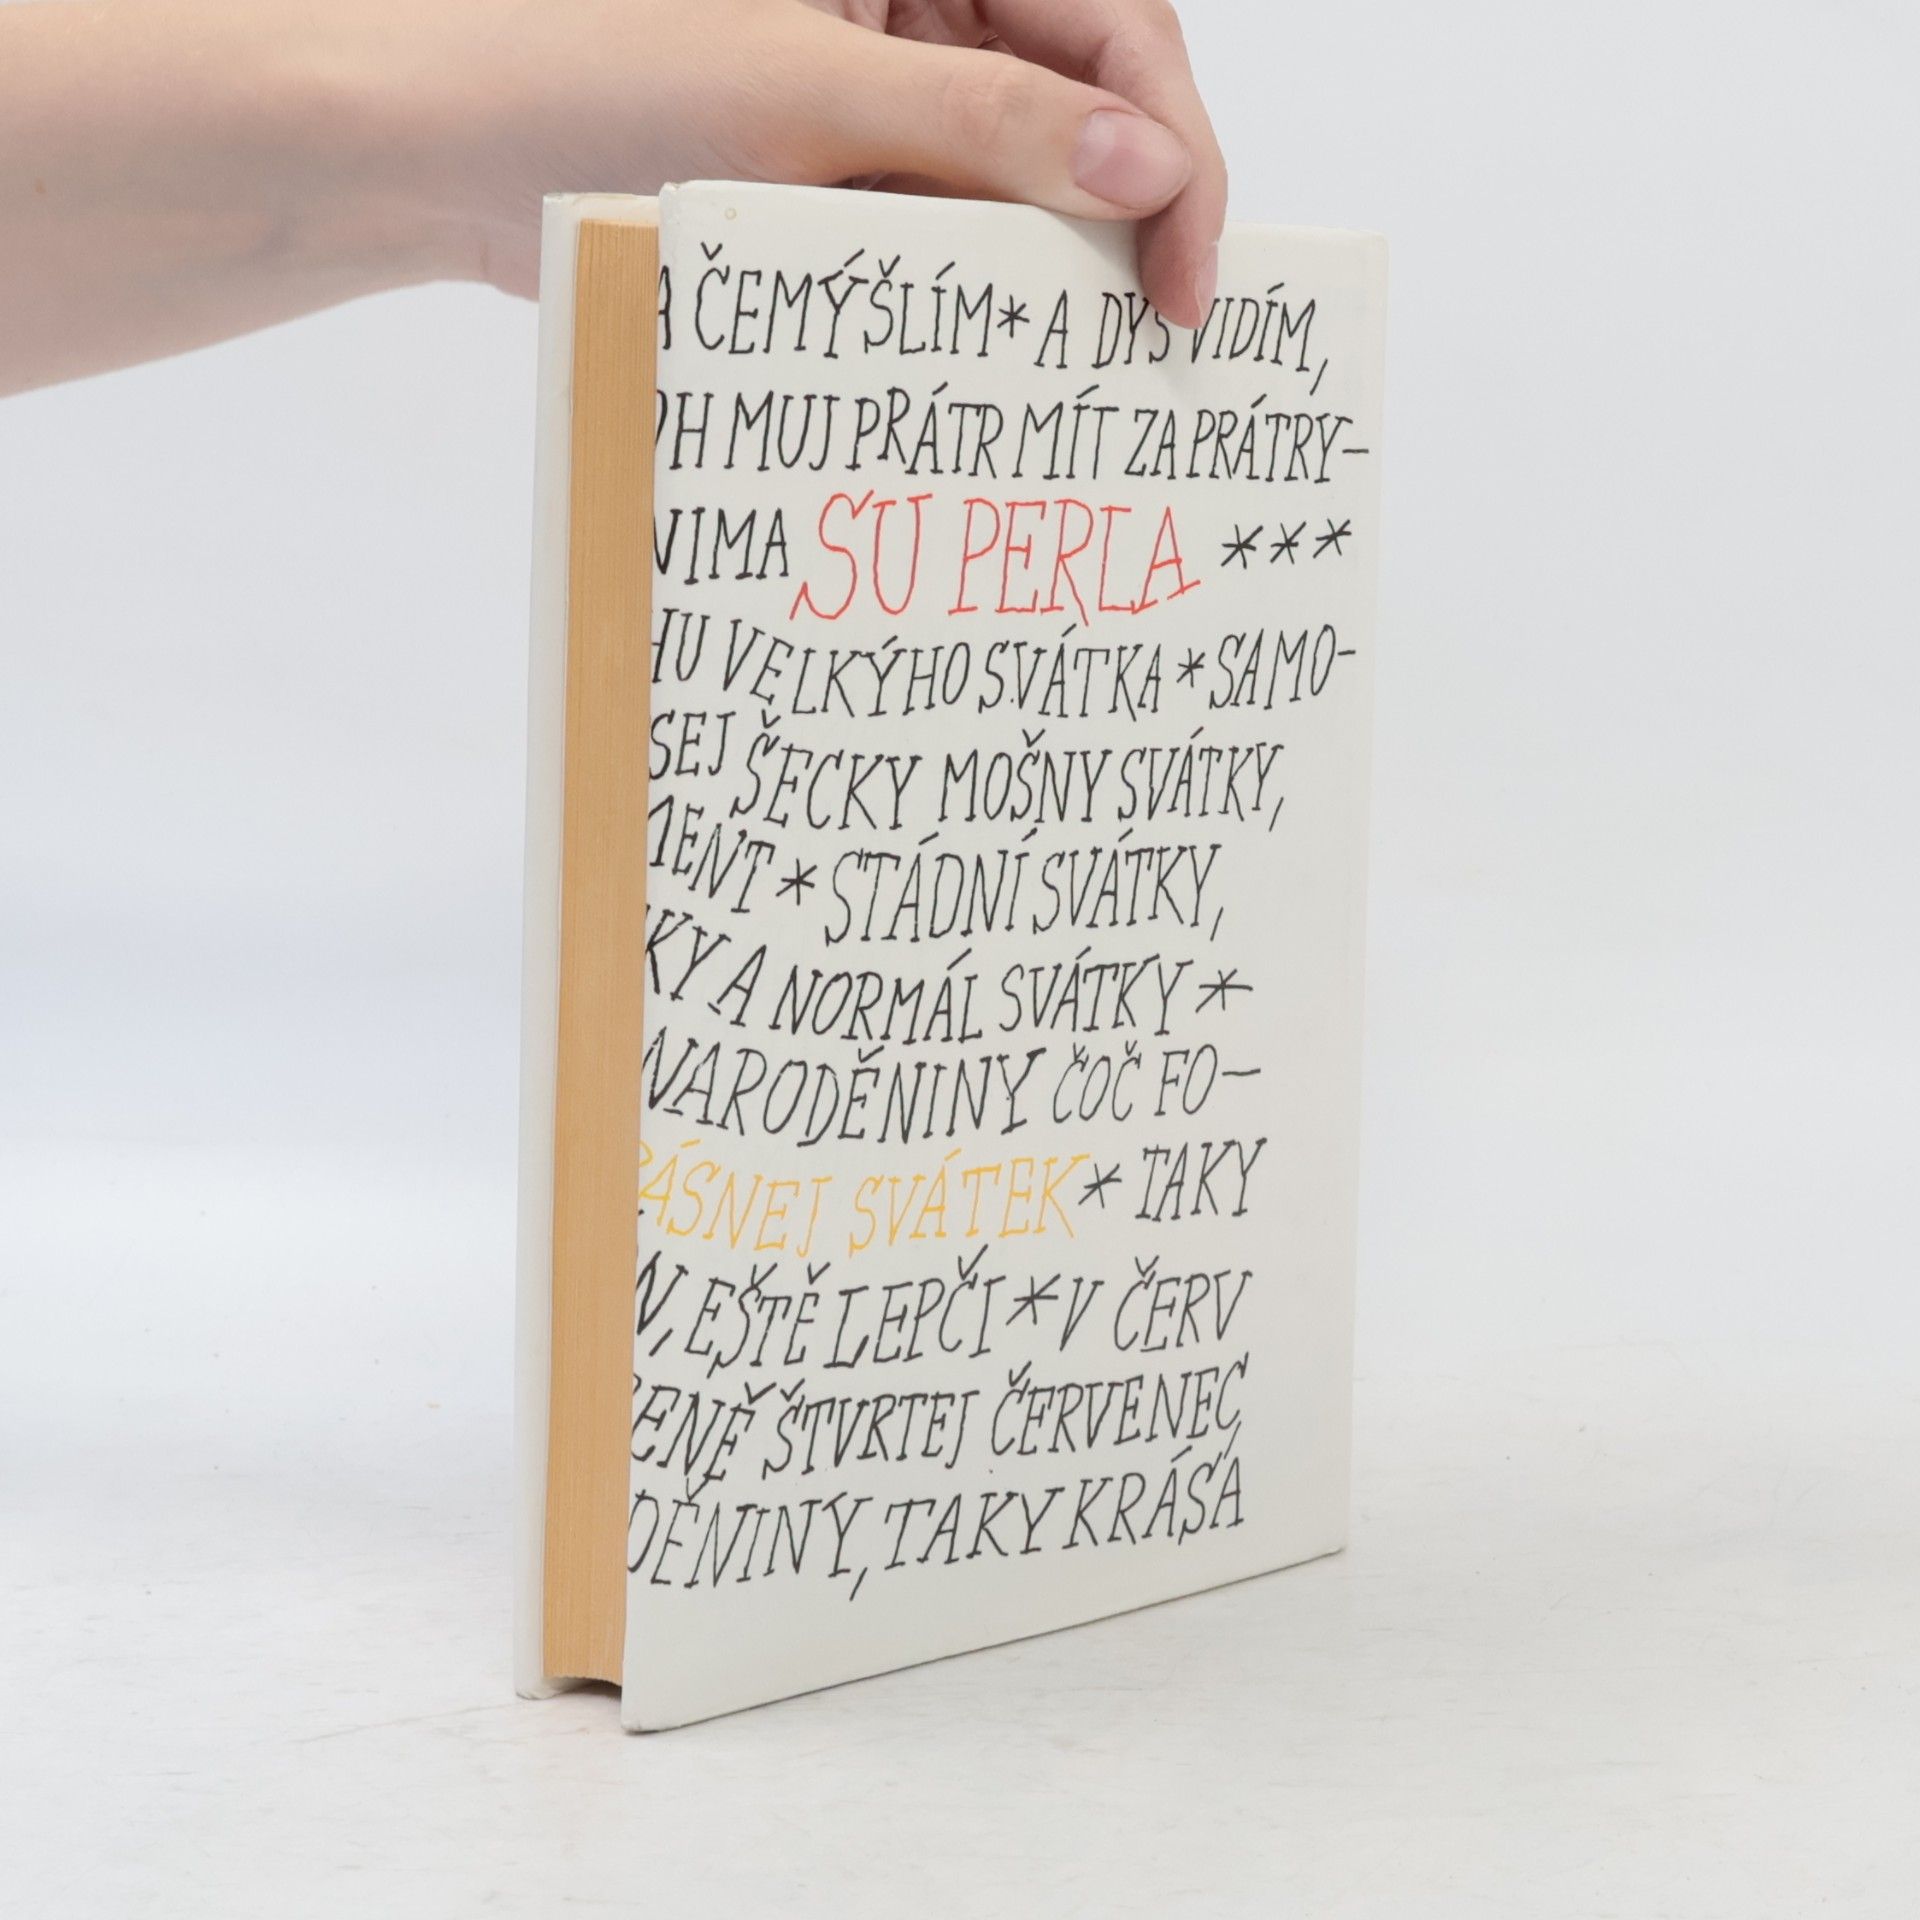 ČEMÝŠLÍM * A DYS VIDÍM,
MUJ PRÁTR MÍT ZA PRÁTRY-
SU PERLA ***
VELKÝHO SVÁTKA * SAMO-
ŠECKY MOŠNY SVÁTKY,
* STÁDNÍ SVÁTKY,
A NORMÁL SVÁTKY *
NARODĚNINY ČOČ FO-
SVÁTEK * TAKY
EŠTĚ LEPČI * V ČERV
ŠTVRTEJ ČERVENEC,
TAKY KRÁSA